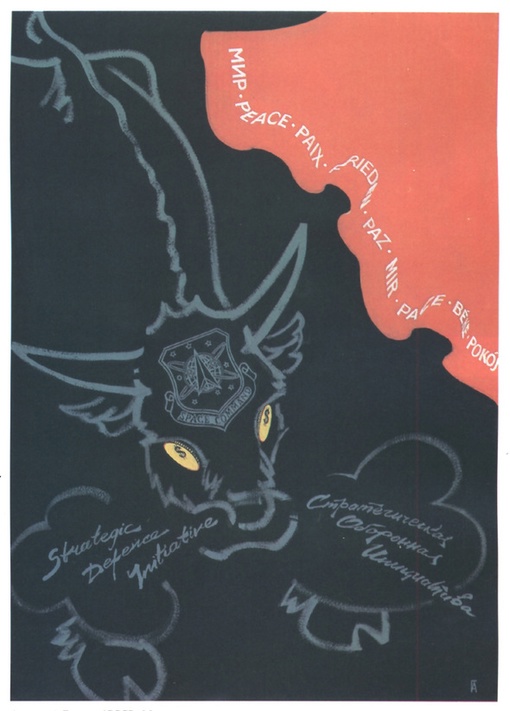 МИР · PEACE · PAIX · FRIEDEN · PAZ · MIR · PACE · BÉKE · POKÓJ
SPACE COMMAND
$ $
Strategic
Defence
Initiative
Стратегическая
Оборонная
Инициатива